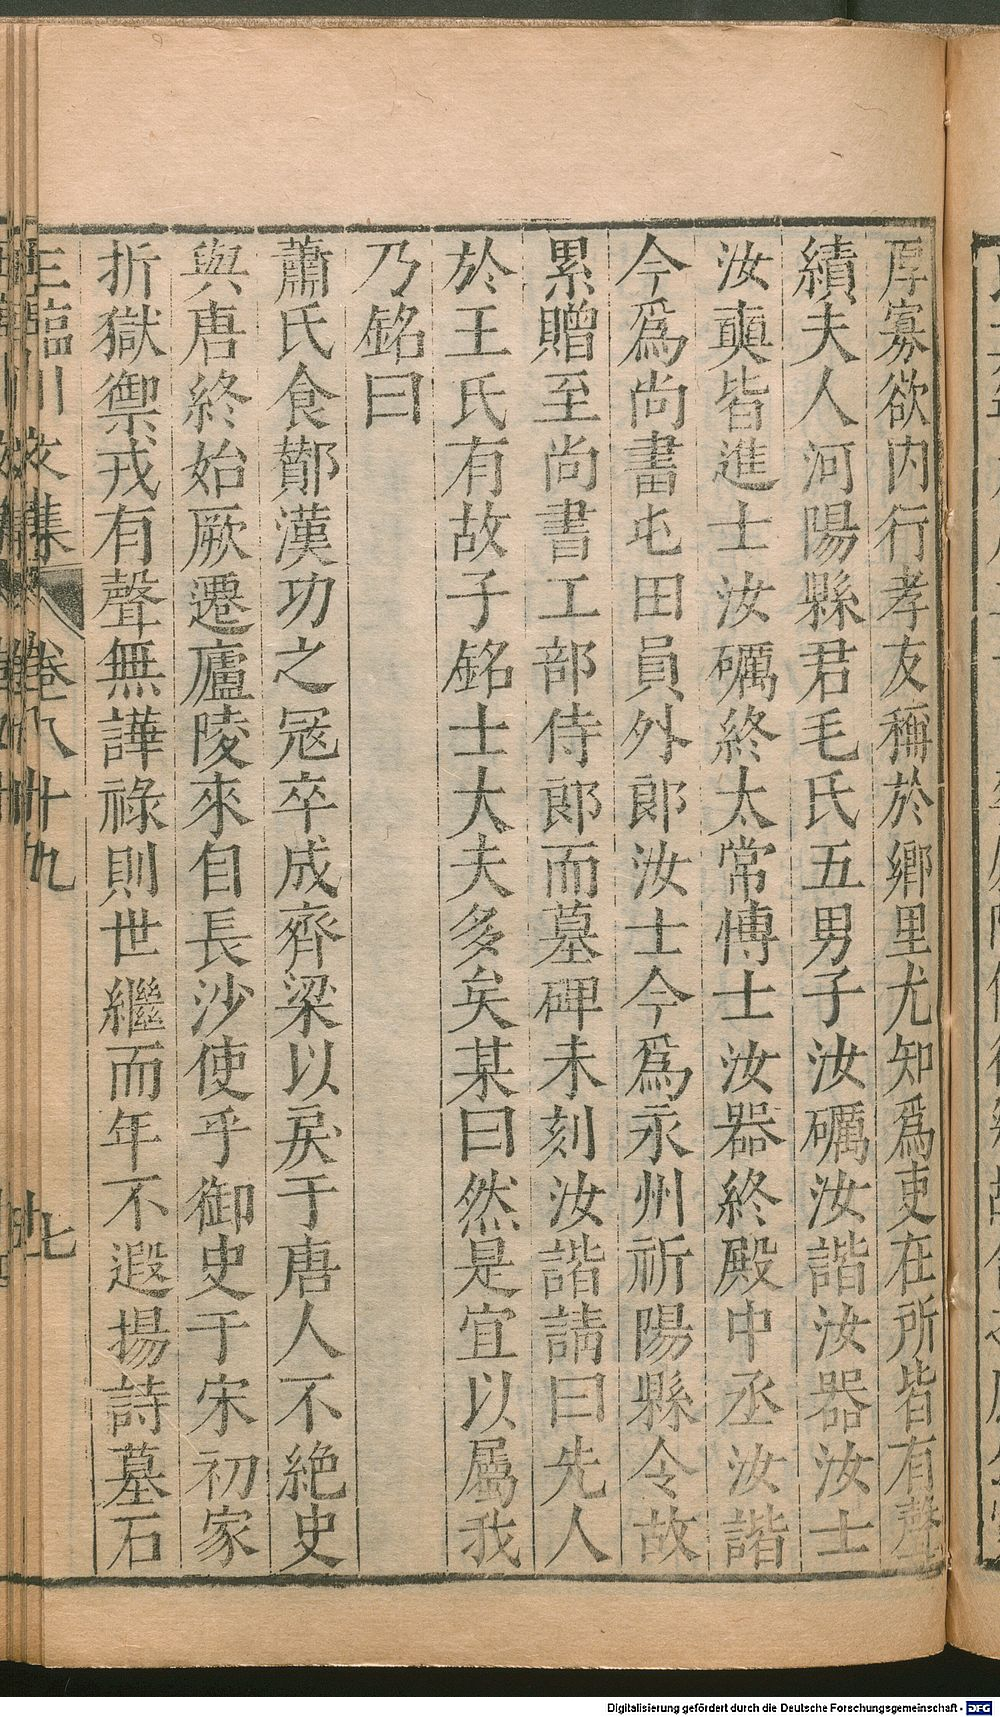 厚寡欲内行孝友稱於鄉里尤知爲吏在所皆有聲
績夫人河陽縣君毛氏五男子汝礪汝諧汝器汝士
汝奭皆進士汝礪終太常博士汝器終殿中丞汝諧
今爲尚書屯田員外郎汝士今爲永州祈陽縣令故
累贈至尚書工部侍郎而墓碑未刻汝諧請曰先人
於王氏有故子銘士大夫多矣某曰然是宜以屬我
乃銘曰
蕭氏食酇漢功之冠卒成齊梁以戾于唐人不絶史
與唐終始厥遷廬陵來自長沙使乎御史于宋初家
折獄禦戎有聲無譁祿則世繼而年不遐揚詩墓石
王臨川文集 卷八十九 七
Digitalisierung gefördert durch die Deutsche Forschungsgemeinschaft - DFG